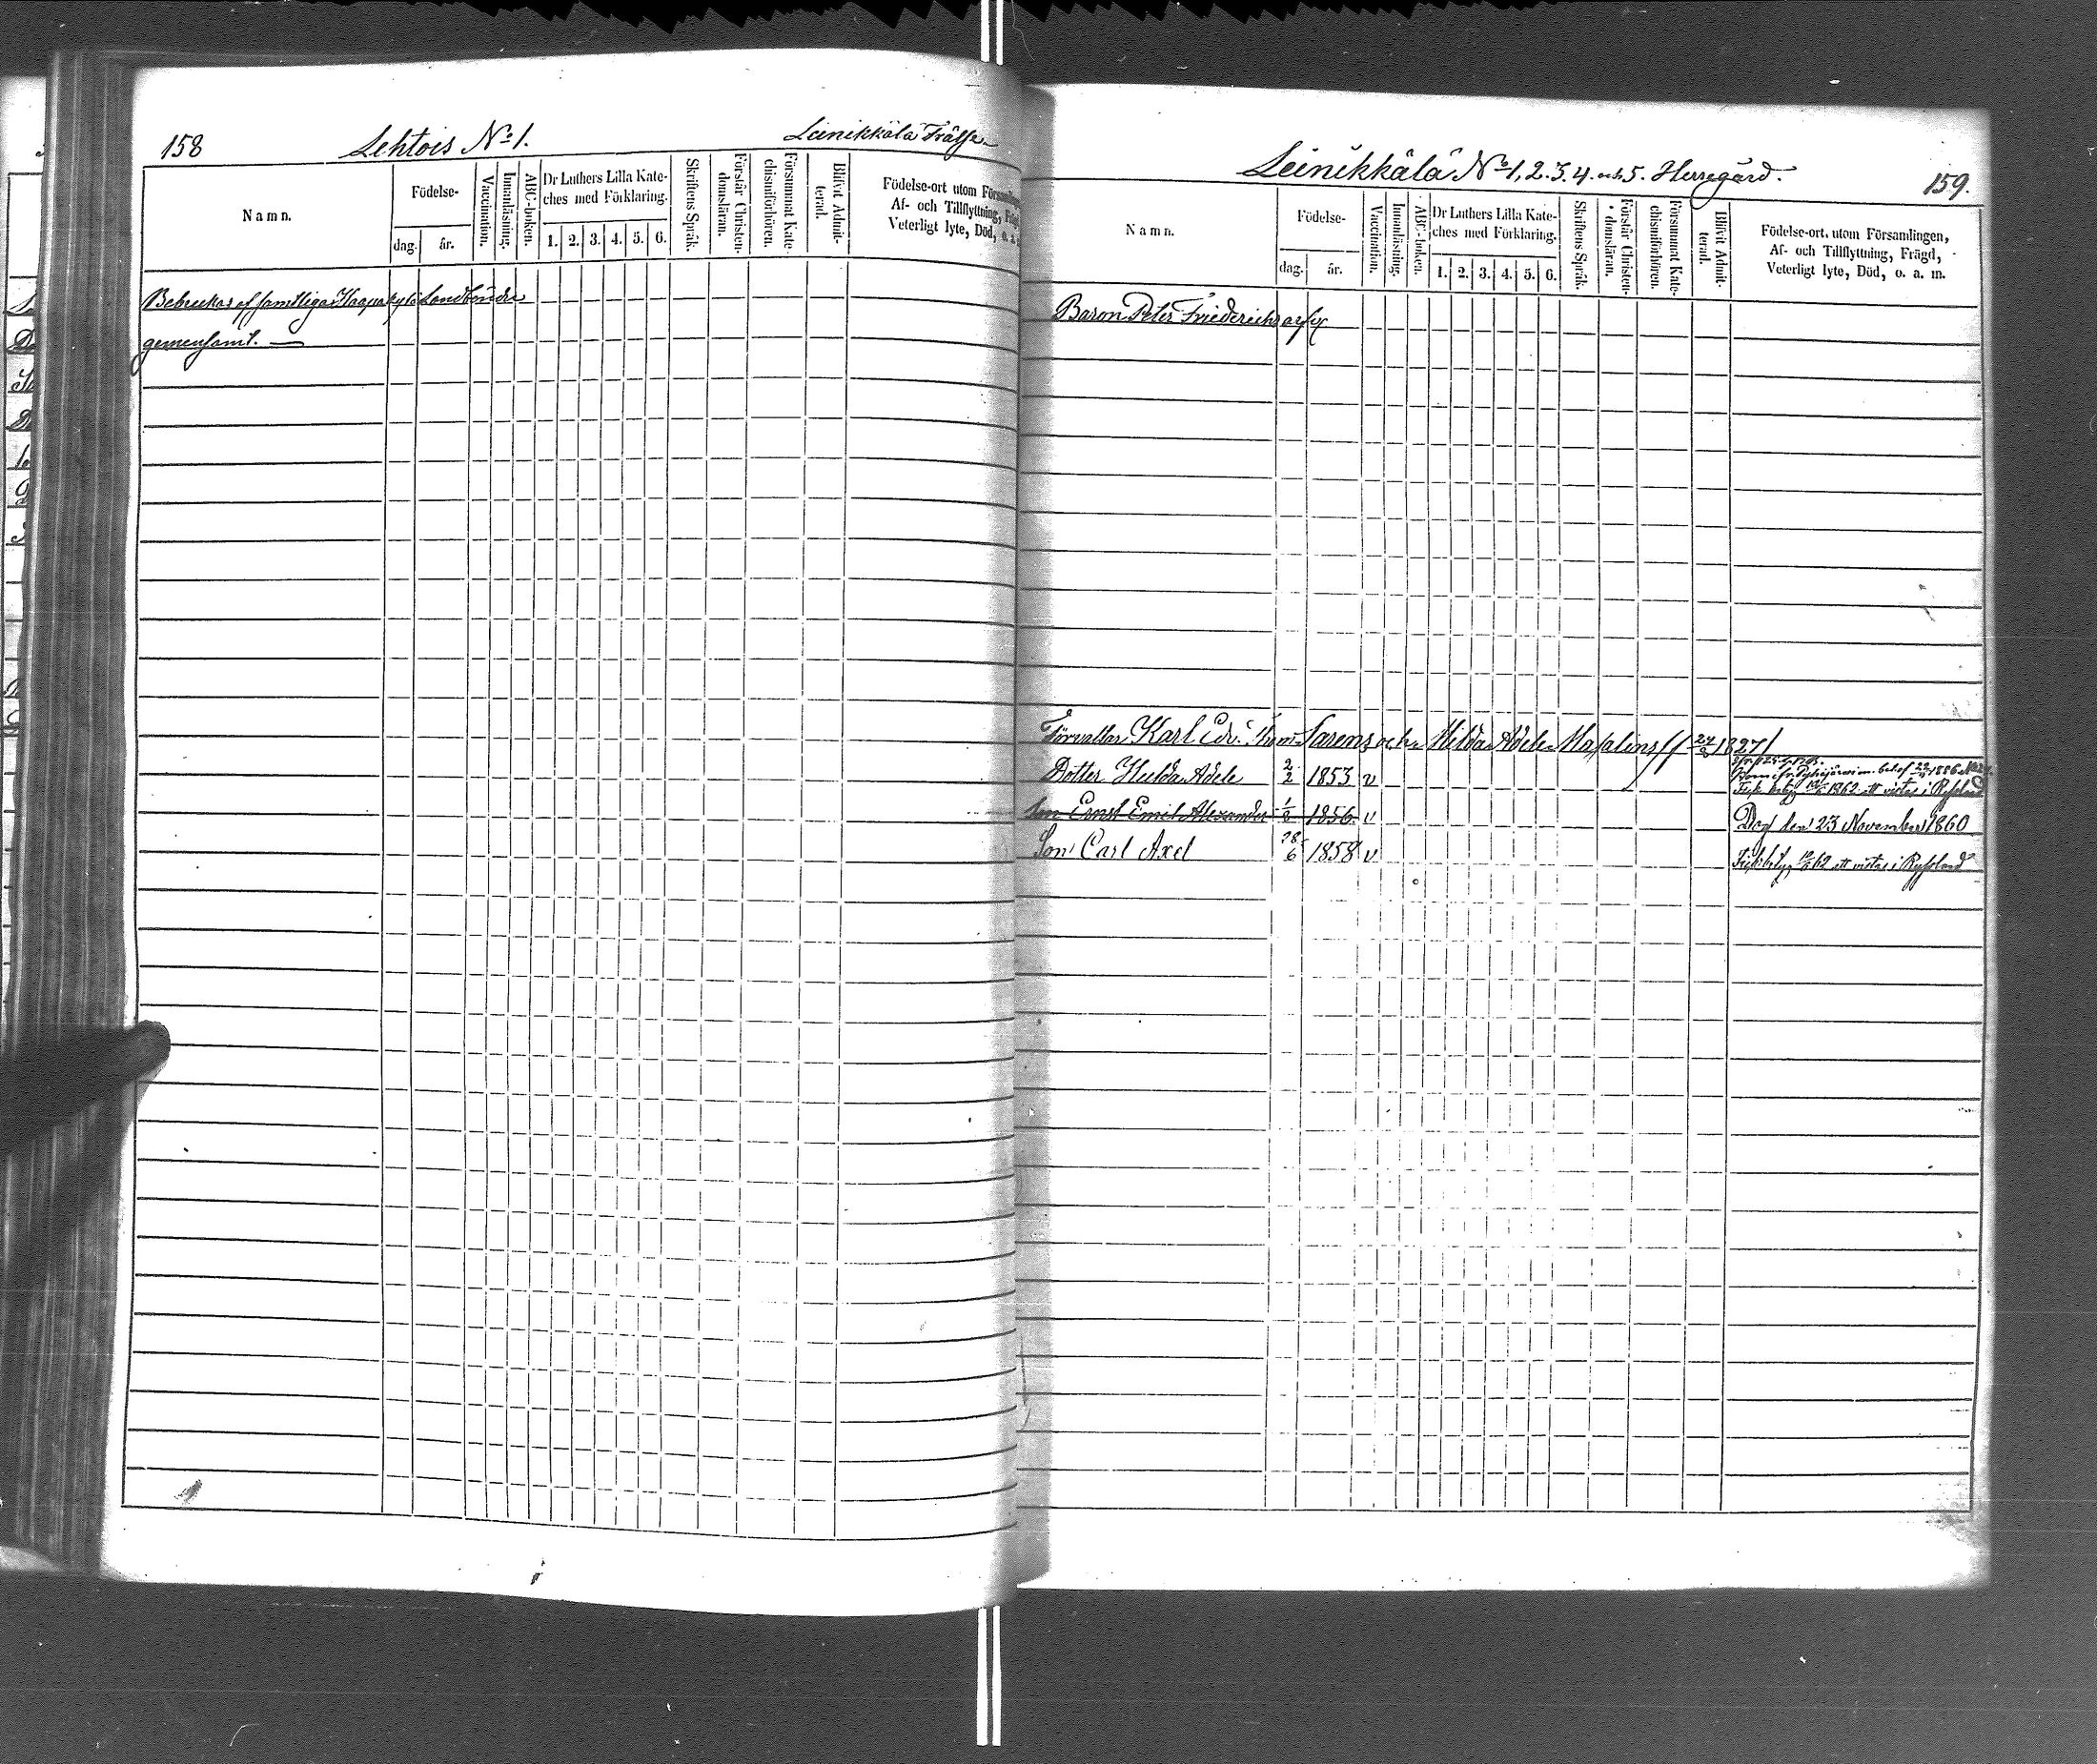 158
Lehtois No 1.
Leinikkälä Frälse
Namn.
Födelse-
dag.
år.
Vaccination.
Innanläsning.
ABC-boken.
Dr Luthers Lilla Kate-
ches med Förklaring.
1. 2. 3. 4. 5. 6.
Skriftens Språk.
Förstår Christen-
domsläran.
Försummat Kate-
chismiförhören.
Blifvit Admit-
terad.
Födelse-ort utom
Af- och Tillflyttning,
Veterligt lyte, Död, o. a.
Brukas af samtliga Haapakylä Landbönder
gemensamt.
Leinikkälä No 1, 2. 3. 4. och 5. Herregård.
159.
Namn.
Födelse-
dag.
år.
Vaccination.
Innanläsning.
ABC-boken.
Dr Luthers Lilla Kate-
ches med Förklaring.
1. 2. 3. 4. 5. 6.
Skriftens Språk.
Förstår Christen-
domsläran.
Försummat Kate-
chismiförhören.
Blifvit Admit-
terad.
Födelse-ort, utom Församlingen,
Af- och Tillflyttning, Frägd,
Veterligt lyte, Död, o. a. m.
Baron Peter Friederichs
Förvaltar Karl Edv. Sarens och Hilda Adele 1827
Dotter Hulda Adele 2/2 1853 v
1862 att vistas i Ryssland
Son Ernst Emil Alexander 1856 v Dog den 23 November 1860
Son Carl Axel 28/6 1858 v 62 att vistas i Ryssland